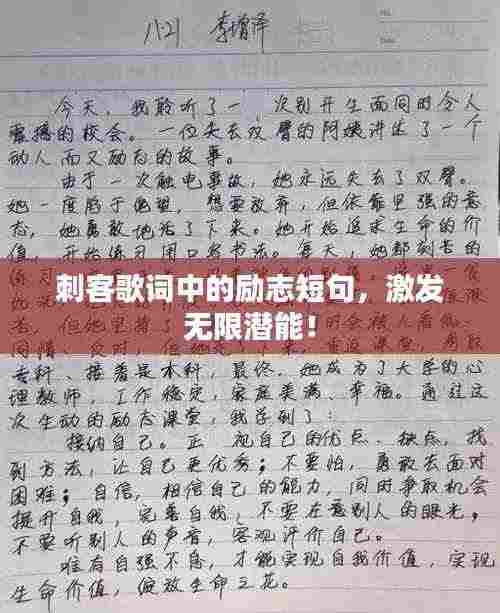 八(2) 李增泽
今天,我聆听了一次别开生面同时令人
震撼的校会。一位失去双臂的阿姨讲述了一个
动人而又励志的故事。
由于一次触电事故,她永远失去了双臂。
她一度陷于绝望,想要放弃,但依靠坚强的意
志,她勇敢地活了下来。她开始追求生命的价
值,开始练习用口写书法。每天,她都刻苦的
刺客歌词中的励志短句,激发
无限潜能!
专科、接着是本科,最终,她成为了大学的心
理教师,工作稳定,家庭美满、幸福。通过这
次生动的励志课堂,我学到了:
接纳自己。正视自己的优点、缺点,找
到方法,让自己更优秀;不要怕,勇敢去面对
困难;自信,相信自己的能力,同时争取机会
提升自我,完善自我,不要在意别人的眼光,
不要听别人的声音,客观评价自己。
唯有自强不息,才能实现自我价值,实现
生命价值,绽放生命之花。